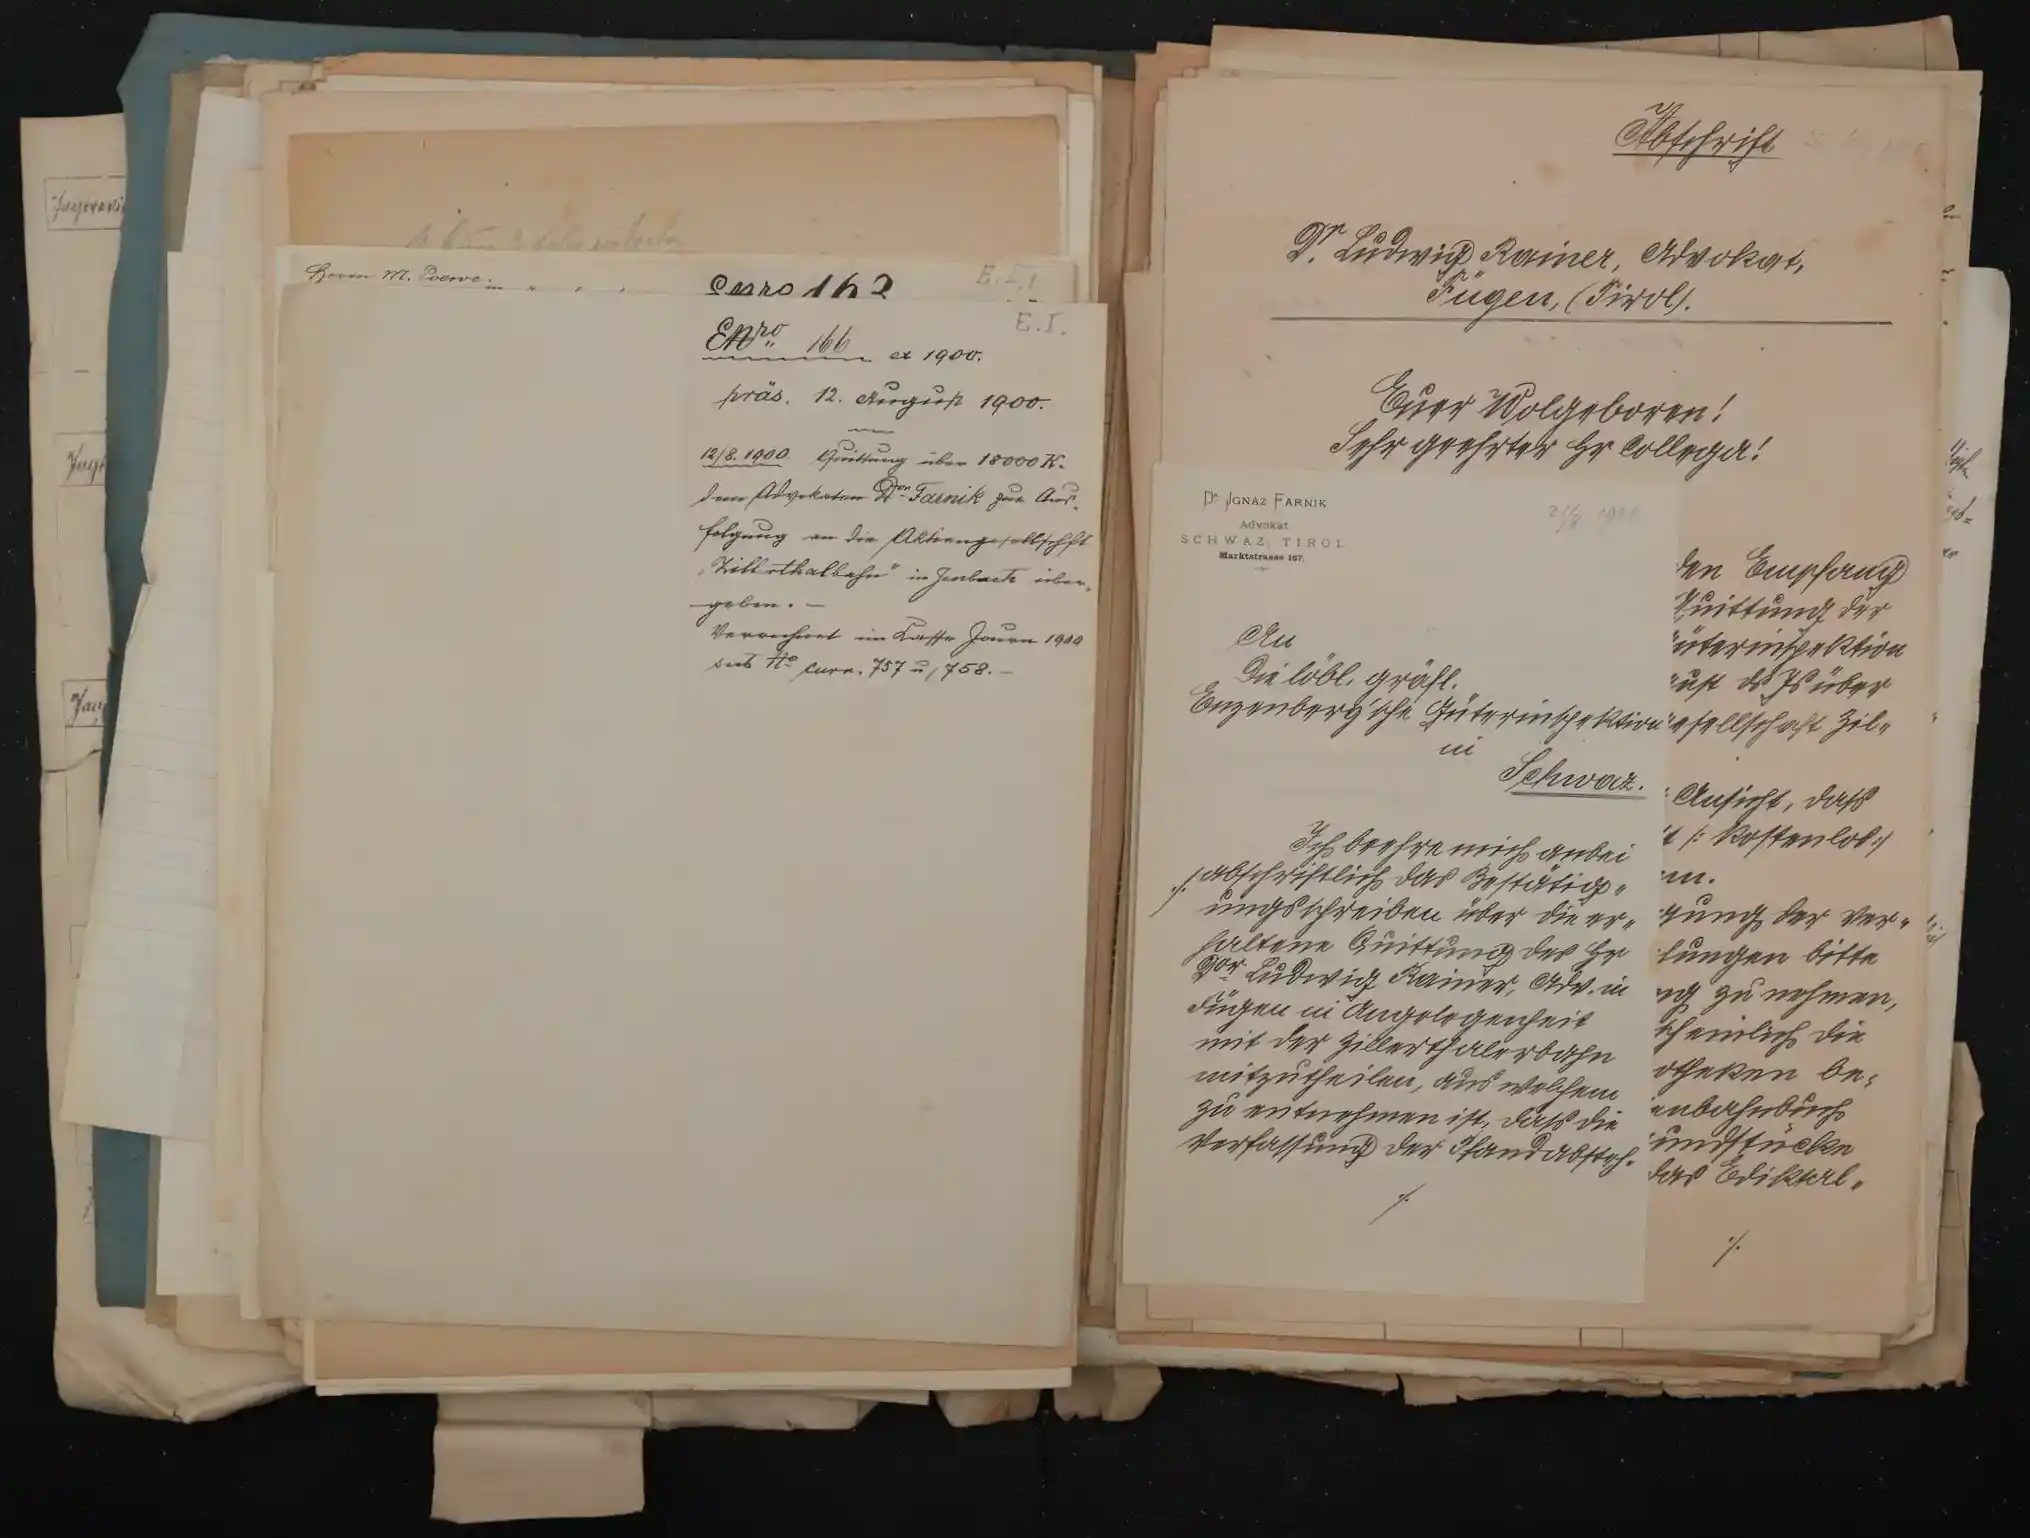 Herrn M. Poewe.
E. I,
Enro 162
E. I.
ENro 166 ex 1900.
präs. 12. August 1900.
12/8. 1900 Quittung über 18000 K.
dem Advokaten Dor Farnik zur Aus-
folgung an die Aktiengesellschft
"Zillerthalbahn" in Jenbach über-
geben. –
Verrechnet im Cassa Journ 1900
sub No curr. 757 u 758. –
Abschrift
Dr. Ludwig Rainer, Advokat,
Fügen, (Tirol).
Euer Wolgeboren!
Sehr geehrter Hr Collega!
den Empfang
Quittung der
üterinspektion
ust ds Js über
esellschaft Zil-
Ansicht, daß
t /: kostenlos :/
em.
gung der ver-
lungen bitte
ng zu nehmen,
scheinlich die
otheken be-
enbahnbuch
undstücke
das Ediktal-
./.
Dr. Ignaz Farnik
Advokat
SCHWAZ, TIROL
Marktstrasse 167.
21/8 1900
An
Die löbl. gräfl.
Enzenberg'sche Güterinspektion
in
Schwaz.
Ich beehre mich anbei
./. abschriftlich das Bestätig-
ungsschreiben über die er-
haltene Quittung des Hr
Dor Ludwig Rainer, Adv. in
Fügen in Angelegenheit
mit der Zillerthalerbahn
mitzutheilen, aus welchem
zu entnehmen ist, daß die
Verfassung der Pfandabsteh-
./.